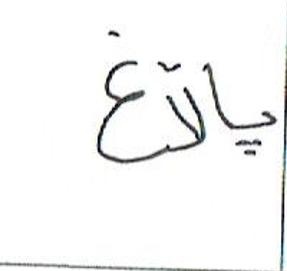 پالآغ